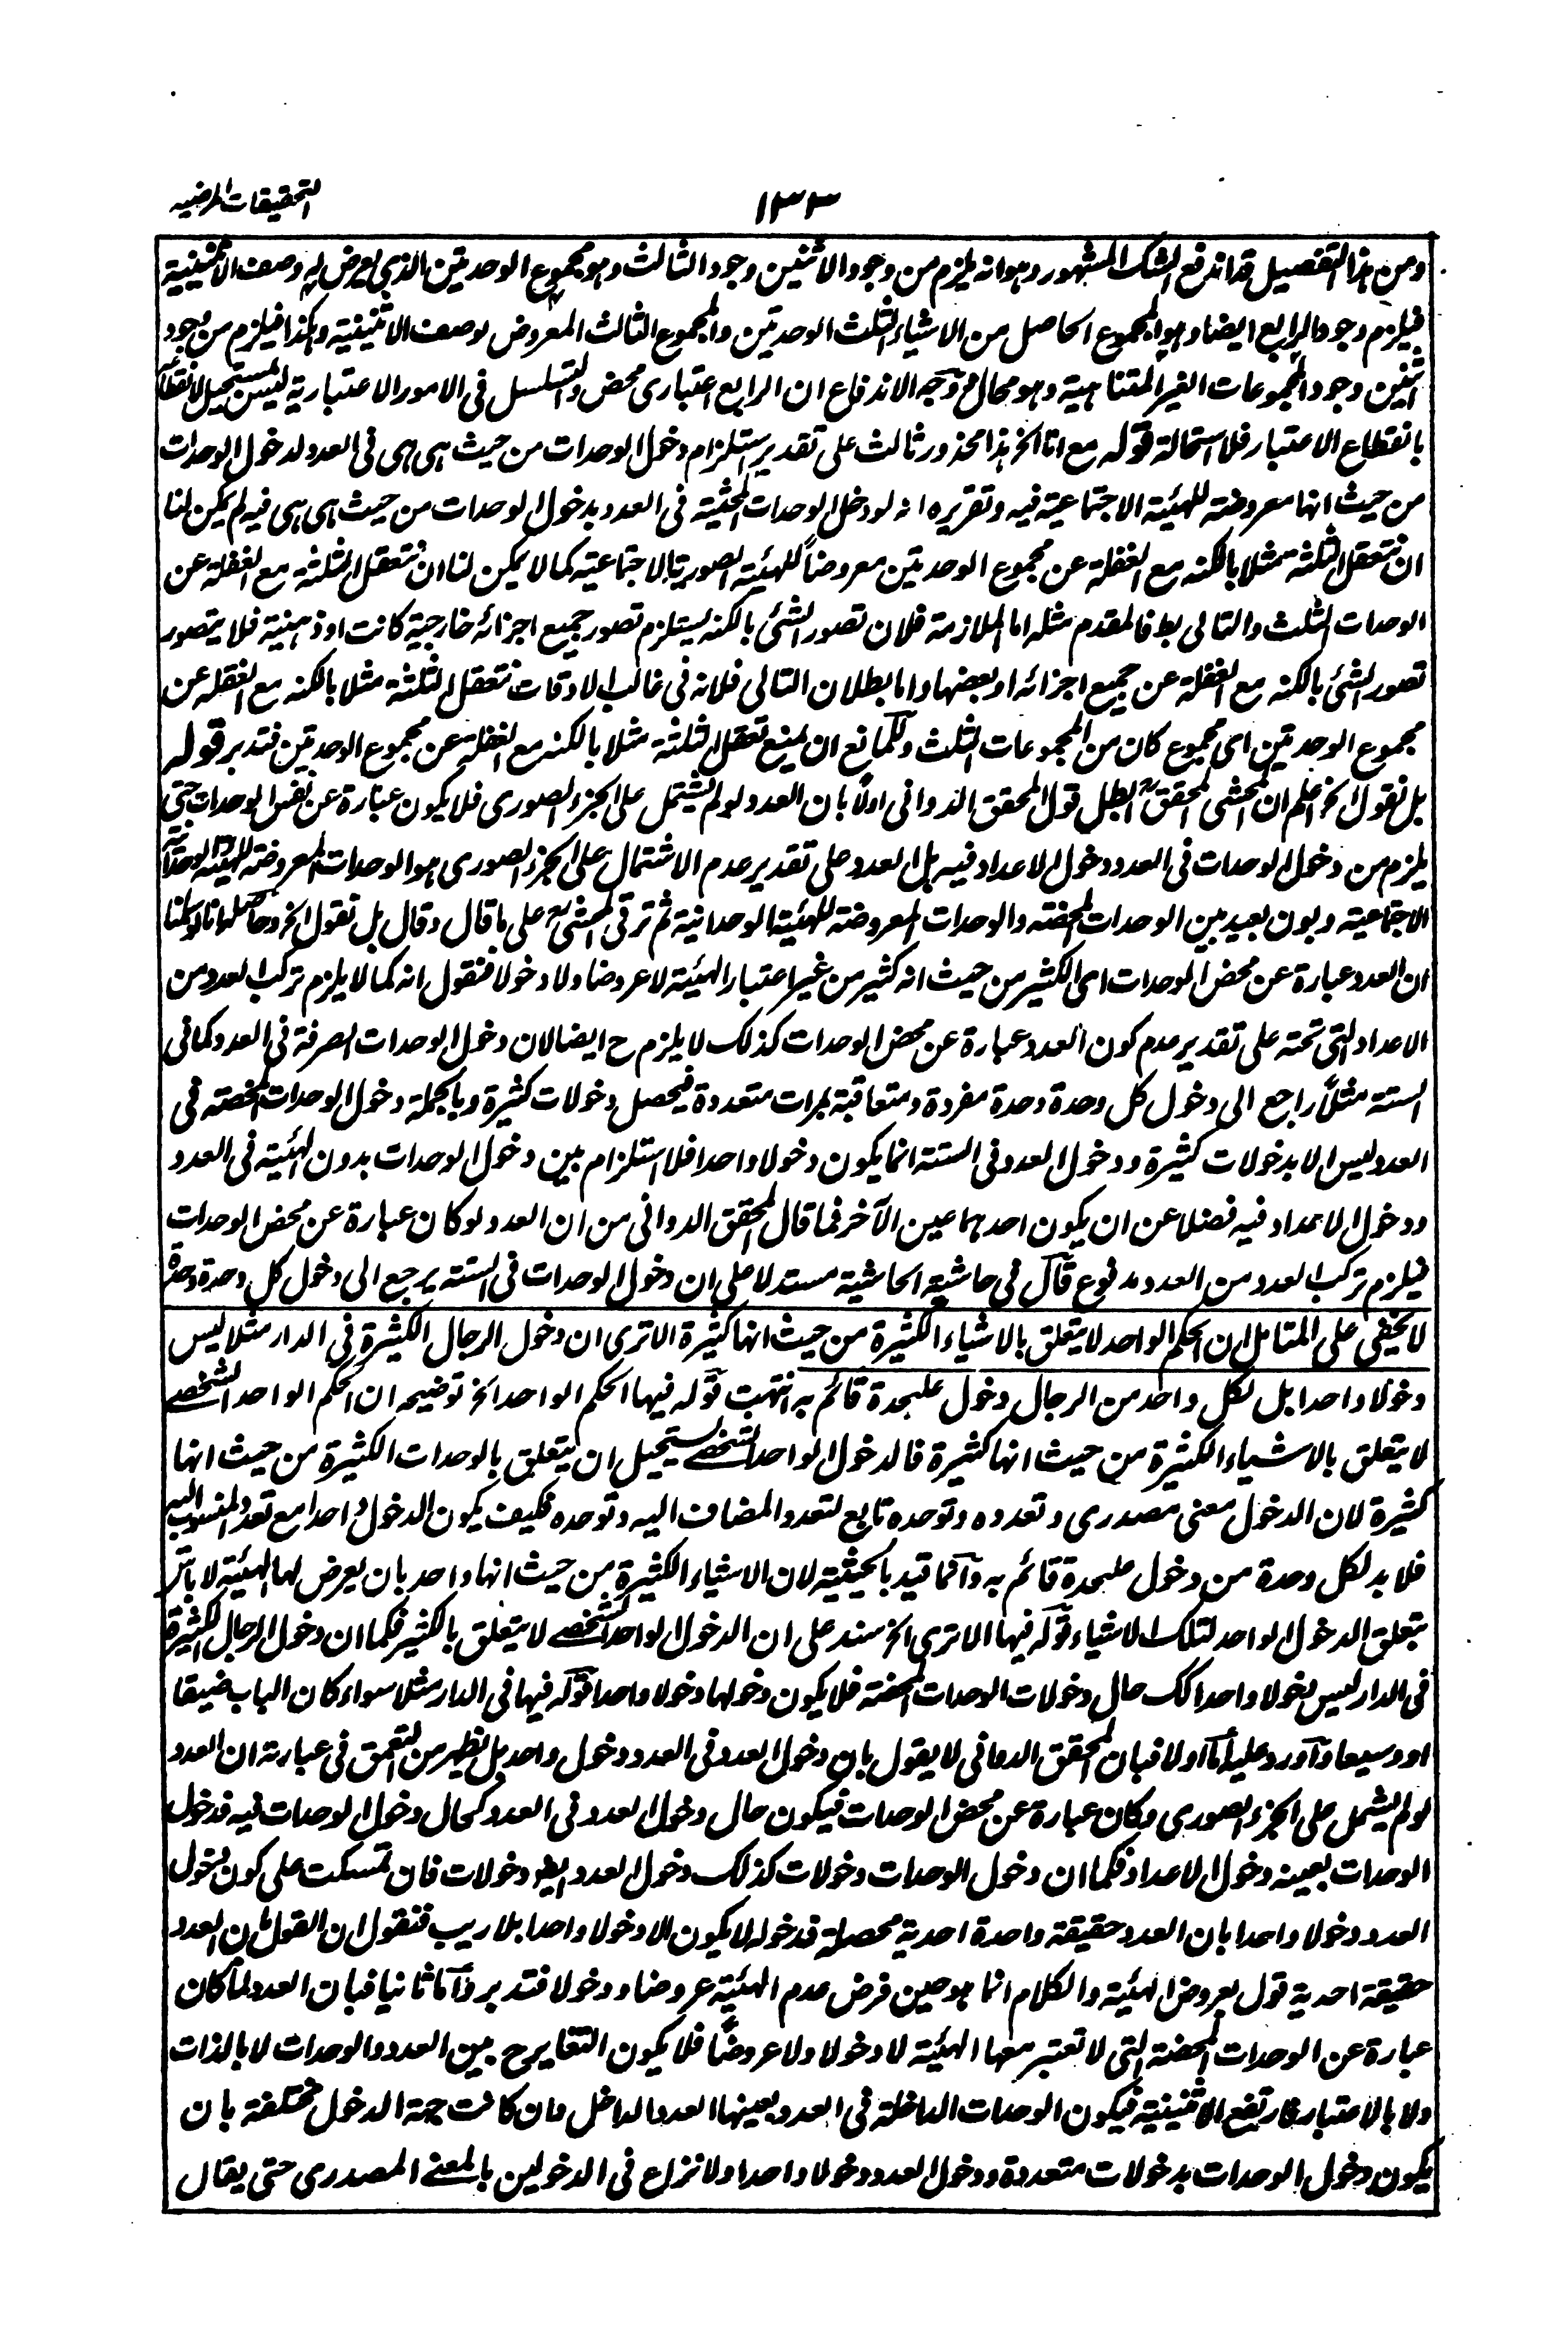 التحقيقات المرضيه
١٣٣
ومن هذا التفصيل قد اندفع الشك المشهور وهو انه يلزم من وجود الاثنين وجود الثالث وهو مجموع الوحدتين الذى يعرض له وصف الاثنينية
فيلزم وجود الرابع ايضا وهو المجموع الحاصل من الاشياء الثلث الوحدتين والمجموع الثالث المعروض لوصف الاثنينية وهكذا فيلزم من وجود
اثنين وجود المجموعات الغير المتناهية وهو محال وجه الاندفاع ان الرابع اعتبارى محض والتسلسل فى الامور الاعتبارية ليس بمستحيل لانقطاعه
بانقطاع الاعتبار فلا استحالة قوله مع انا الخ هذا محذور ثالث على تقدير استلزام دخول الوحدات من حيث هى هى فى العدد لدخول الوحدات
من حيث انها معروضة للهيئة الاجتماعية فيه وتقريره انه لو دخل الوحدات المحيثية فى العدد بدخول الوحدات من حيث هى هى فيه لم يكن لنا
ان نتعقل الثلثة مثلا بالكنه مع الغفلة عن مجموع الوحدتين معروضاً للهيئة الصورية الاجتماعية كما لا يمكن لنا ان نتعقل الثلثة مع الغفلة عن
الوحدات الثلث والتالى بط فالمقدم مثله اما الملازمة فلان تصور الشئ بالكنه يستلزم تصور جميع اجزائه خارجية كانت او ذهنية فلا يتصور
تصور الشئ بالكنه مع الغفلة عن جميع اجزائه او بعضها واما بطلان التالى فلانه فى غالب الاوقات نتعقل الثلثة مثلا بالكنه مع الغفلة عن
مجموع الوحدتين اى مجموع كان من المجموعات الثلث وللمانع ان يمنع تعقل الثلثة مثلا بالكنه مع الغفلة عن مجموع الوحدتين فتدبر قوله
بل نقول الخ اعلم ان المحشى المحقق ابطل قول المحقق الدوانى اولاً بان العدد لو لم يشتمل على الجزء الصورى فلا يكون عبارة عن نفس الوحدات حتى
يلزم من دخول الوحدات فى العدد دخول الاعداد فيه بل العدد على تقدير عدم الاشتمال على الجزء الصورى هو الوحدات المعروضة للهيئة الوحدانية
الاجتماعية وبون بعيد بين الوحدات المحضة والوحدات المعروضة للهيئة الوحدانية ثم ترقى المحشى على ما قال وقال بل نقول الخ وحاصله انا لو سلمنا
ان العدد عبارة عن محض الوحدات اى الكثير من حيث انه كثير من غير اعتبار الهيئة لا عروضا ولا دخولا فنقول انه كما لا يلزم تركب العدد من
الاعداد التى تحته على تقدير عدم كون العدد عبارة عن محض الوحدات كذلك لا يلزم ح ايضا لان دخول الوحدات الصرفة فى العدد كما فى
الستة مثلاً راجع الى دخول كل وحدة وحدة مفردة ومتعاقبة بمرات متعددة فيحصل دخولات كثيرة وبالجملة دخول الوحدات المحضة فى
العدد ليس الا بدخولات كثيرة ودخول العدد فى الستة انما يكون دخولا واحدا فلا استلزام بين دخول الوحدات بدون الهيئة فى العدد
ودخول الاعداد فيه فضلا عن ان يكون احدهما عين الآخر فما قال المحقق الدوانى من ان العدد لو كان عبارة عن محض الوحدات
فيلزم تركب العدد من العدد مدفوع قال فى حاشية الحاشية مستدلا على ان دخول الوحدات فى الستة يرجع الى دخول كل وحدة وحدة
لا يخفى على المتامل ان الحكم الواحد لا يتعلق بالاشياء الكثيرة من حيث انها كثيرة الا ترى ان دخول الرجال الكثيرة فى الدار مثلا ليس
دخولا واحدا بل لكل واحد من الرجال دخول عليحدة قائم به انتهت قوله فيها الحكم الواحد الخ توضيحه ان الحكم الواحد الشخصى
لا يتعلق بالاشياء الكثيرة من حيث انها كثيرة فالدخول الواحد الشخصى يستحيل ان يتعلق بالوحدات الكثيرة من حيث انها
كثيرة لان الدخول معنى مصدرى وتعدده وتوحده تابع لتعدد المضاف اليه وتوحده فكيف يكون الدخول واحدا مع تعدد المنسوب اليه
فلا بد لكل وحدة من دخول عليحدة قائم به وانما قيد بالحيثية لان الاشياء الكثيرة من حيث انها واحد بان يعرض لها الهيئة لا باس
بتعلق الدخول الواحد لتلك الاشياء قوله فيها الا ترى الخ سند على ان الدخول الواحد الشخصى لا يتعلق بالكثير فكما ان دخول الرجال الكثيرة
فى الدار ليس دخولا واحدا كك حال دخولات الوحدات المحضة فلا يكون دخولها دخولا واحدا قوله فيها فى الدار مثلا سواء كان الباب ضيقا
او وسيعا واورد عليه اما اولا فبان المحقق الدوانى لا يقول بان دخول العدد فى العدد دخول واحد بل يظهر من التعمق فى عبارته ان العدد
لو لم يشمل على الجزء الصورى وكان عبارة عن محض الوحدات فيكون حال دخول العدد فى العدد كحال دخول الوحدات فيه فدخول
الوحدات بعينه دخول الاعداد فكما ان دخول الوحدات دخولات كذلك دخول العدد ايضا دخولات فان تمسكت على كون دخول
العدد دخولا واحدا بان العدد حقيقة واحدة احدية محصلة فدخوله لا يكون الا دخولا واحدا بلا ريب فنقول ان القول بان العدد
حقيقة احدية قول بعروض الهيئة والكلام انما هو حين فرض عدم الهيئة عروضا ودخولا فتدبر واما ثانيا فبان العدد لما كان
عبارة عن الوحدات المحضة التى لا تعتبر معها الهيئة لا دخولا ولا عروضاً فلا يكون التغاير ح بين العدد والوحدات لا بالذات
ولا بالاعتبار فارتفع الاثنينية فيكون الوحدات الداخلة فى العدد بعينها العدد الداخل وان كانت جهة الدخول مختلفة بان
يكون دخول الوحدات بدخولات متعددة ودخول العدد دخولا واحدا ولا نزاع فى الدخولين بالمعنى المصدرى حتى يقال